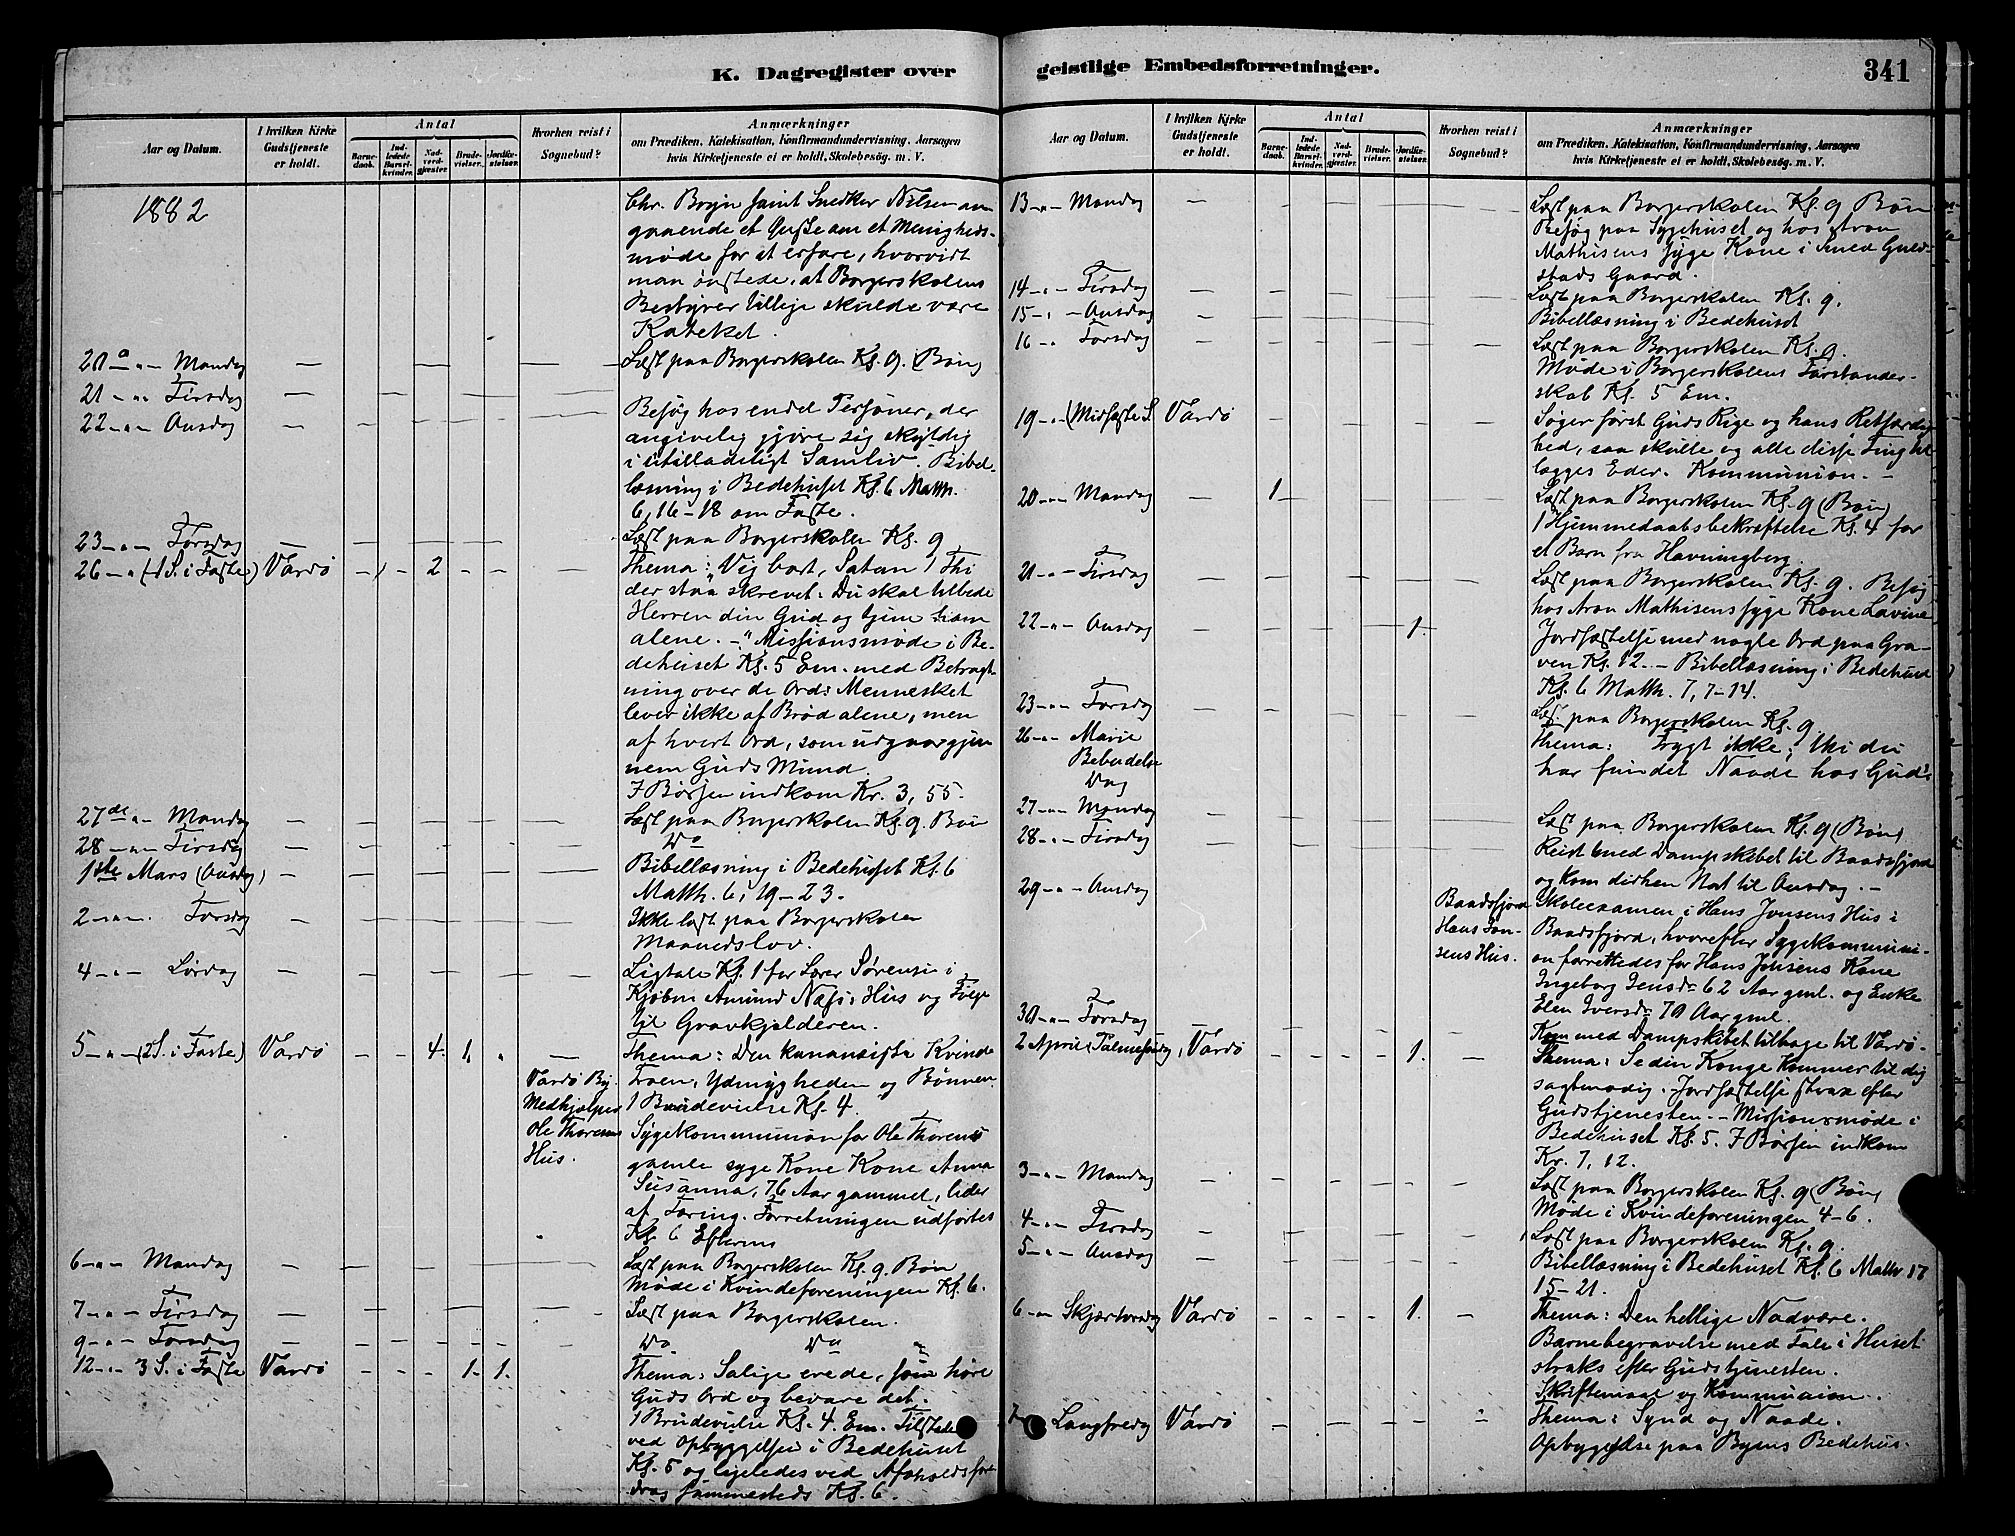 K. Dagregister over
geistlige Embedsforretninger.
341
Aar og Datum.
I hvilken Kirke Gudstjeneste er holdt.
Antal
Barnedaab.
Indledede Barselkvinder.
Nadverdgjester.
Brudevielser.
Jordfæstelser.
Hvorhen reist i Sognebud?
Anmærkninger
om Prædiken, Katekisation, Konfirmandundervisning, Aarsagen
hvis Kirketjeneste ei er holdt, Skolebesøg. m. V.
1882
Chr. Brejn samt Snedker Nilsen an
gaaende et Ønske om et Menigheds-
møde for at erfare, hvorvidt
man ønskede, at Borgerskolens
Bestyrer tillige skulde være
Kateket.
20 - " - Mandag — Læst paa Borgerskolen Kl. 9. (Bøn)
21 - " - Tirsdag —
22 - " - Onsdag — Besøg hos endel Personer, der
angivelig gjøre sig skyldig
i utilladeligt Samliv. Bibel-
læsning i Bedehuset Kl. 6 Matth.
6, 16-18 om Faste.
23 - " - Torsdag — Læst paa Borgerskolen Kl. 9
26 - " (1 S. i Faste) Vardø - 1 - 2 - - - Thema: "Vig bort, Satan! Thi
der staa skrevet: Du skal tilbede
Herren din Gud og tjene ham
alene. -" Missionsmøde i Be-
dehuset Kl. 5 Em. med Betragt-
ning over de Ord: Mennesket
lever ikke af Brød alene, men
af hvert Ord, som udgaar gjen
nem Guds Mund.
I Bøssen indkom Kr. 3, 55.
27de " - Mandag — Læst paa Borgerskolen Kl. 9. Bøn
28 - " - Tirsdag — Do
1ste Mars (Onsdag) — Bibellæsning i Bedehuset Kl. 6
Matth. 6, 19-23.
2 - " - Torsdag — Ikke læst paa Borgerskolen
Maanedslov.
4 - " - Lørdag — Ligtale Kl. 1 for Lærer Sørensen i
Kjøbm Amund Næss Hus og Følge
til Gravkjelderen.
5 - " - (2 S. i Faste) Vardø - - 4 1 " - Thema: Den kananæiske Kvinde
Troen, Ydmygheden og Bønnen
1 Brudevielse Kl. 4.
Vardø By.
Medhjælper
Ole Thorens
Hus.
Sygekommunion for Ole Thorens
gamle syge Kone Kone Anna
Susanna, 76 Aar gammel, lider
af Tæring. Forretningen udførtes
Kl. 6 Efterm
6 - " - Mandag — Læst paa Borgerskolen Kl. 9. Bøn
Møde i Kvindeforeningen Kl. 6.
7 - " - Tirsdag — Læst paa Borgerskolen.
9 - " - Torsdag — Do Do "
12 - " 3 S. i Faste Vardø - - - 1. 1. Thema: Salige ere de, som høre
Guds Ord og bevare det.
1 Brudevielse Kl. 4. Em. Tilstede
ved Opbyggelsen i Bedehuset
Kl. 5 og ligeledes ved Afholdsfore
drag sammesteds Kl. 6.
Aar og Datum.
I hvilken Kirke Gudstjeneste er holdt.
Antal
Barnedaab.
Indledede Barselkvinder.
Nadverdgjester.
Brudevielser.
Jordfæstelser.
Hvorhen reist i Sognebud?
Anmærkninger
om Prædiken, Katekisation, Konfirmandundervisning, Aarsagen
hvis Kirketjeneste ei er holdt, Skolebesøg. m. V.
13 - " - Mandag — Læst paa Borgerskolen Kl. 9 Bøn
Besøg paa Sygehuset og hos Aron
Mathisens syge Kone i Smed Guld-
stads Gaard.
14 - " - Tirsdag — Læst paa Borgerskolen Kl. 9.
15 - " - Onsdag — Bibellæsning i Bedehuset
16 - " Torsdag — Læst paa Borgerskolen Kl. 9.
Møde i Borgerskolens Forstander-
skab Kl. 5 Em.
19 - " (Midfaste S. Vardø Søger først Guds Rige og hans Retfærdig
hed, saa skulle og alle disse Ting til
lægges Eder. Kommunion. -
20 - " - Mandag — 1 Læst paa Borgerskolen Kl. 9 (Bøn)
1 Hjemmedaabsbekræftelse Kl. 4 for
et Barn fra Havningberg.
21 - " - Tirsdag — Læst paa Borgerskolen Kl. 9. Besøg
hos Aron Mathisens syge Kone Lavine
22 - " - Onsdag — 1. Jordfæstelse med nogle Ord paa Gra-
ven Kl. 12. - Bibellæsning i Bedehuset
Kl. 6 Matth. 7, 7-14.
23 - " - Torsdag — Læst paa Borgerskolen Kl. 9
26 - " - Marie
Bebudelse
Dag
Thema: Frygt ikke; thi du
har fundet Naade hos Gud.
27 - " - Mandag — Læst paa Borgerskolen Kl. 9 (Bøn)
28 - " - Tirsdag — Reist med Dampskibet til Baadsfjord
og kom did hen Nat til Onsdag. -
29 - " - Onsdag
Baadsfjord
Hans Jon-
sens Hus.
Skoleexamen i Hans Jonsens Hus i
Baadsfjord, hvorefter Sygekommuni-
on forrettedes for Hans Jonsens Kone
Ingeborg Jensdr. 62 Aar gml. og Enke
Elen Iversdr. 70 Aar gml.
30 - " - Torsdag — Kom med Dampskibet tilbage til Vardø.
2 April (Palmesøndag) Vardø - - - - 1. - Thema: Se din Konge kommer til dig
sagtmodig. Jordfæstelse strax efter
Gudstjenesten. - Missionsmøde i
Bedehuset Kl. 5. I Bøssen indkom
Kr. 7, 12.
3 - " - Mandag — Læst paa Borgerskolen Kl. 9 (Bøn)
Møde i Kvindeforeningen 4-6.
4 - " - Tirsdag — Læst paa Borgerskolen Kl. 9.
5 - " - Onsdag — Bibellæsning i Bedehuset Kl. 6 Matth. 17
15-21.
6 - " Skjærtorsdag Vardø - - - - 1. - Thema: Den hellige Nadvære.
Barnebegravelse med Tale i Huset
straks efter Gudstjenesten.
Skriftemaal og Kommunion.
7 - Langfredag Vardø - - - - - " Thema: Synd og Naade.
Opbyggelse paa Byens Bedehus.